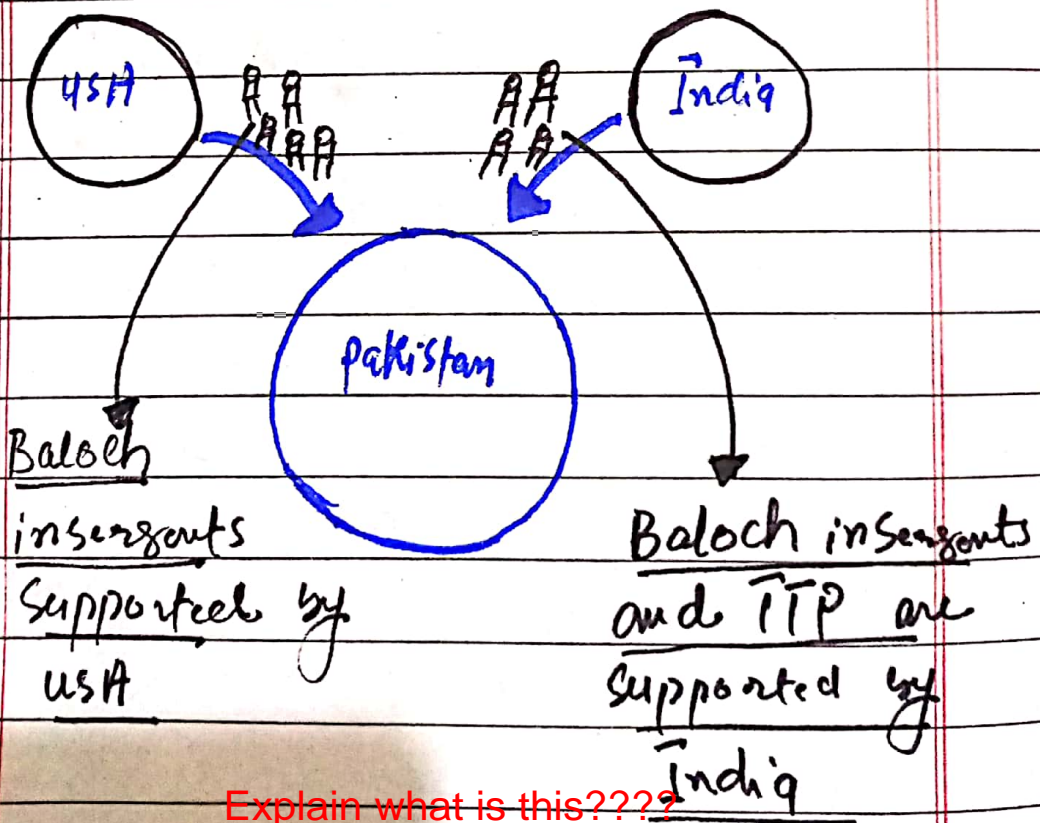 USA
India
Pakistan
Baloch
insergents
Supported by
USA
Baloch insergents
and TTP are
supported by
India
Explain what is this????